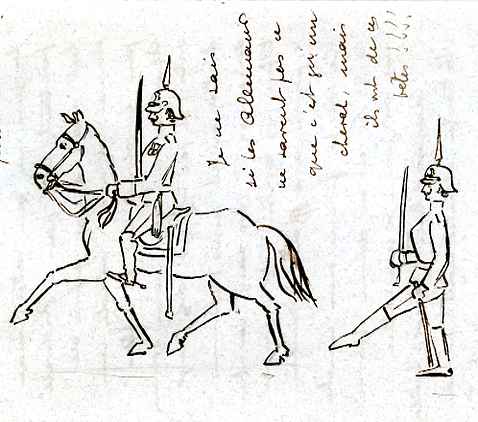 Je ne sais
si les Allemands
ne savent pas ce
que c'est qu'un
cheval, mais
ils ont de ces
bêtes !!!!